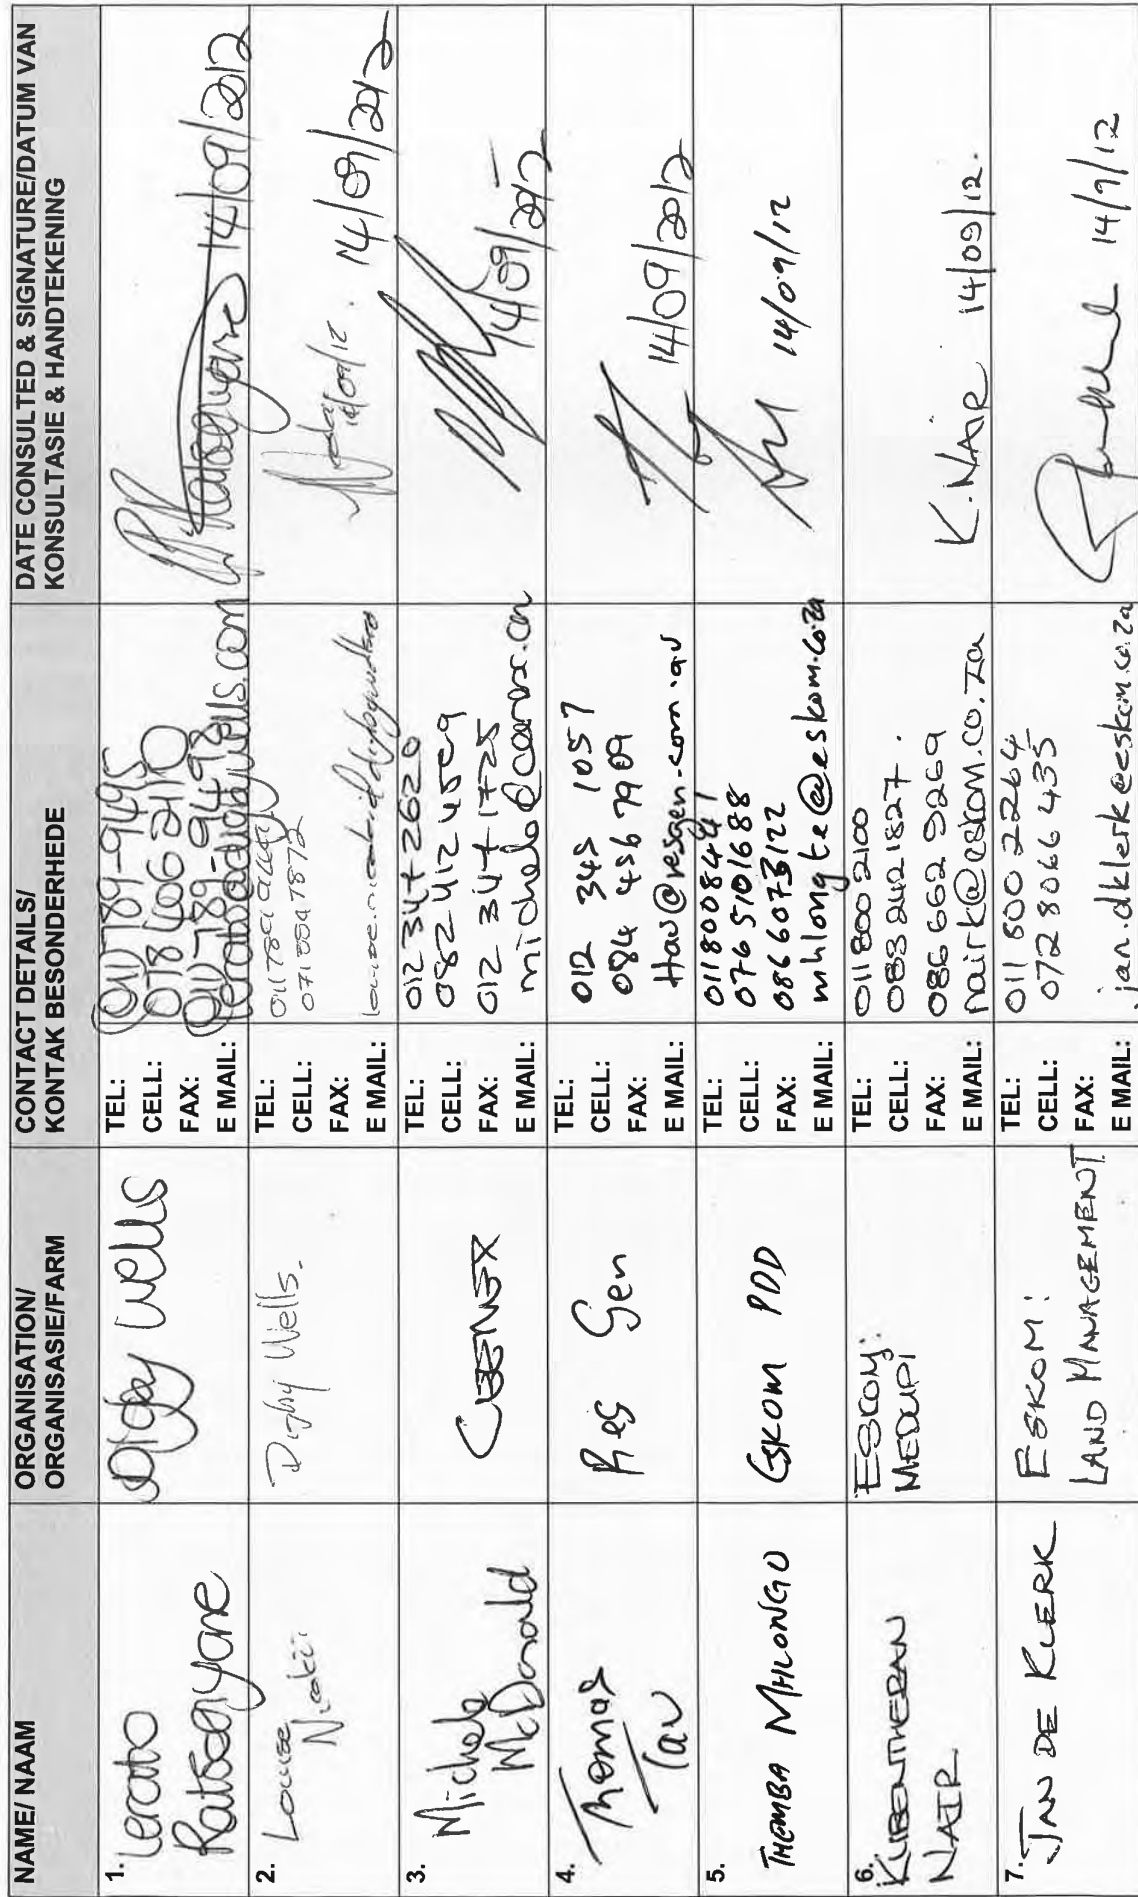 NAME/ NAAM
ORGANISATION/
ORGANISASIE/FARM
CONTACT DETAILS/
KONTAK BESONDERHEDE
DATE CONSULTED & SIGNATURE/DATUM VAN
KONSULTASIE & HANDTEKENING
1. Lerato
Ratsoenyane
Digby Wells
TEL: (011) 789-9495
CELL: 078 606 2110
FAX: (011) 789-9498
E MAIL:
14/09/2012
2. Louise
Digby Wells.
TEL:
CELL:
FAX:
E MAIL:
14/09/12. 14/09/2012
3. Michele
McDonald
TEL: 012 347 2620
CELL: 082 412
FAX: 012 347 1725
E MAIL:
14/09/2012
4. Thomas
Tau
Res Gen
TEL: 012 345 1057
CELL: 084 456 7909
FAX:
E MAIL: ttau@resgen.com.au
14/09/2012
5. THEMBA MHLONGO
ESKOM PDD
TEL:
CELL: 076 5101688
FAX: 086 6073122
E MAIL: mhlongte@eskom.co.za
14/09/12
6. KUBENTHERAN
NAIR
ESKOM:
MEDUPI
TEL: 011 800 2100
CELL: 083 242 1827.
FAX: 086 662 9269
E MAIL: nairk@eskom.co.za
K. NAIR 14/09/12.
7. JAN DE KLERK
ESKOM:
LAND MANAGEMENT
TEL: 011 800 2264
CELL: 072 8066 435
FAX:
E MAIL: jan.dklerk@eskom.co.za
14/9/12